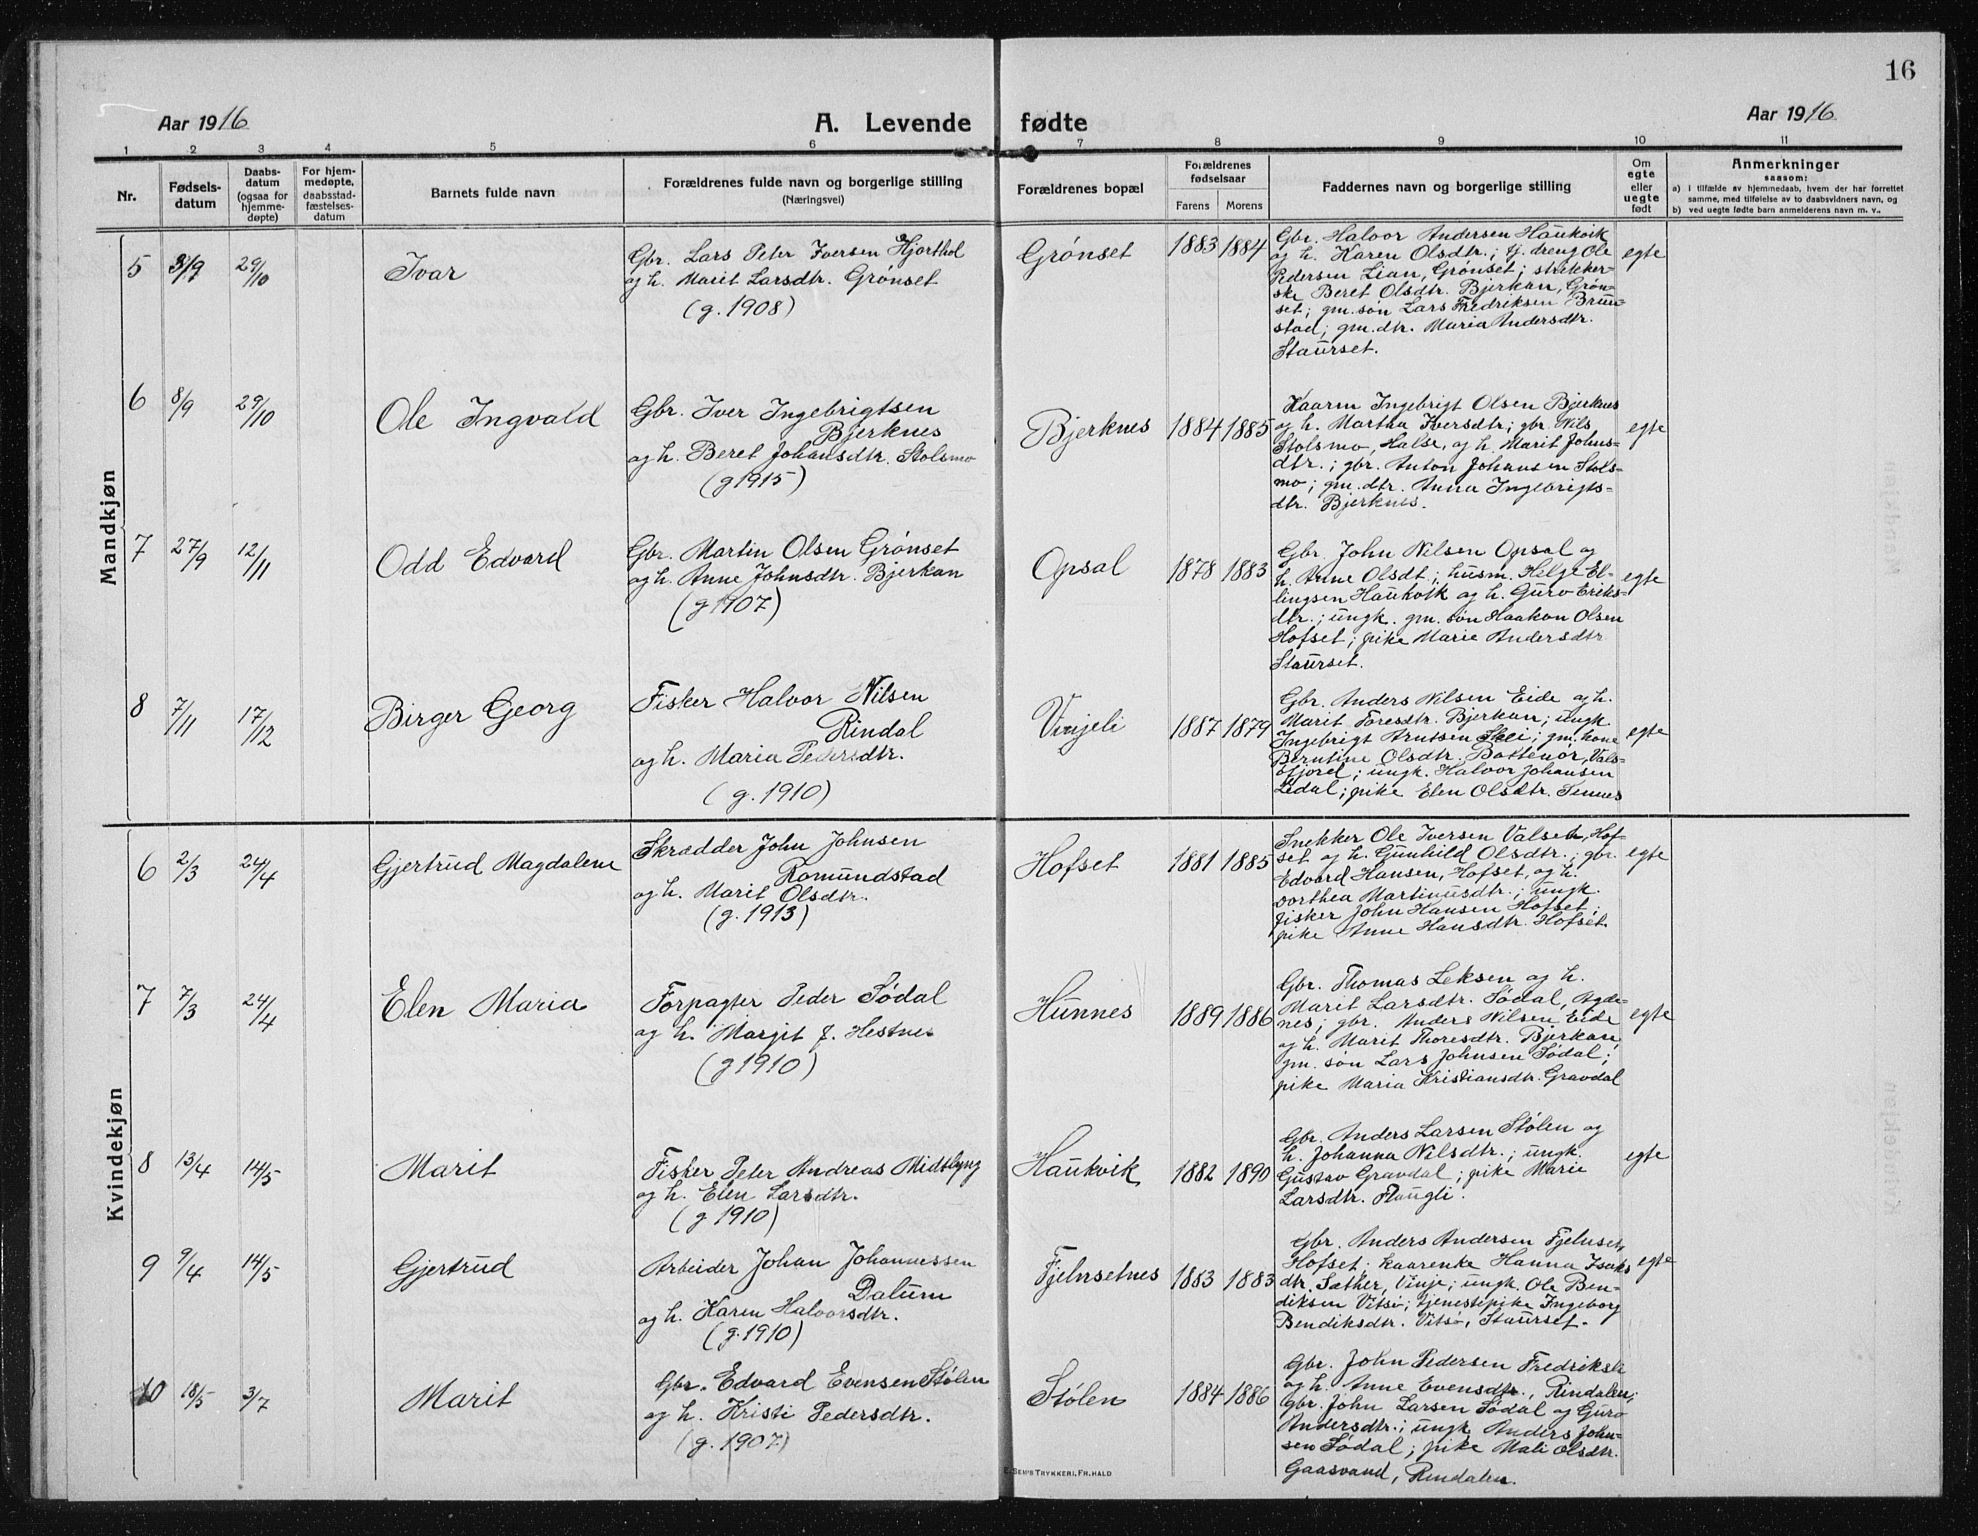 16
Aar 1916
A. Levende fødte
Aar 1916
1 2 3 4 5 6 7 8 9 10 11
Nr.
Fødsels-
datum
Daabs-
datum
(ogsaa for
hjemme-
døpte)
For hjem-
medøpte,
daabsstad-
fæstelses-
datum
Barnets fulde navn
Forældrenes fulde navn og borgerlige stilling
(Næringsvei)
Forældrenes bopæl
Forældrenes
fødselsaar
Farens Morens
Faddernes navn og borgerlige stilling
Om
egte
eller
uegte
født
Anmerkninger
saasom:
a) i tilfælde av hjemmedaab, hvem der har forrettet
samme, med tilføielse av to daabsvidners navn, og
b) ved uegte fødte barn anmelderens navn m. v.,
Mandkjøn
5 3/9 29/10 Ivar
Gbr. Lars Peter Iversen Hjorthol
og h. Marit Larsdtr. Grønset
(g. 1908)
Grønset 1883 1884
Gbr. Halvor Andersen Haukvik
og h. Karen Olsdtr.; tj. dreng Ole
Pedersen Lian, Grønset; strikker-
ske Beret Olsdtr. Bjerkan, Grøn-
set; gm. søn Lars Fredriksen Brun-
stad; gm. dtr. Maria Andersdtr.
Staurset.
egte
6 8/9 29/10 Ole Ingvald
Gbr. Iver Ingebrigtsen
Bjerknes
og h. Beret Johansdtr. Stolsmo
(g 1915)
Bjerknes 1884 1885
Kaarm Ingebrigt Olsen Bjerknes
og h. Martha Iversdtr; gbr. Nils
Stolsmo, Halse, og h. Marit Johns-
dtr.; gbr. Anton Johansen Stols-
mo; gm. dtr. Anna Ingebrigts-
dtr. Bjerknes.
egte
7 27/9 12/11 Odd Edvard
Gbr. Martin Olsen Grønset
og h. Anne Johnsdtr. Bjerkan
(g 1907)
Opsal 1878 1883
Gbr. John Nilsen Opsal og
h. Anne Olsdt; husm. Helge El-
lingsen Haukvik og h. Guro Eriks-
dtr.; ungk. gm. søn Haakon Olsen
Hofset; pike Marie Andersdtr
Staurset.
egte
8 7/11 17/12 Birger Georg
Fisker Halvor Nilsen
Rindal
og h. Maria Pedersdtr.
(g. 1910)
Vinjeli 1887 1879
Gbr. Anders Nilsen Eide og h.
Marit Toresdtr. Bjerkan; ungk.
Ingebrigt Arntsen Skei; gm. kone
Berntine Olsdtr. Bottenør, Vals-
øfjord; ungk. Halvor Johansen
Lidal; pike Elen Olsdtr. Tennes
egte
Kvindekjøn
6 2/3 24/4 Gjertrud Magdalene
Skrædder John Johnsen
Romundstad
og h. Marit Olsdtr.
(g. 1913)
Hofset 1881 1885
Snekker Ole Iversen Valset, Hof-
set og h. Gunhild Olsdtr.; gbr.
Edvard Hansen, Hofset, og h.
Dorthea Martinusdtr.; ungk.
fisker John Hansen Hofset;
pike Anne Hansdtr. Hofset.
egte
7 7/3 24/4 Elen Maria
Forpagter Peder Sødal
og h. Margit f. Hestnes
(g 1910)
Hunnes 1889 1886
Gbr. Thomas Leksen og h.
Marit Larsdtr. Sødal, Agde-
nes; gbr. Anders Nilsen Eide
og h. Marit Thoresdtr. Bjerkan;
gm. søn Lars Johnsen Sødal;
pike Maria Kristiansdtr. Gravdal
egte
8 13/4 14/5 Marit
Fisker Peter Andreas Midtlyng
og h. Elen Larsdtr.
(g 1910)
Haukvik 1882 1890
Gbr. Anders Larsen Stølen og
h. Johanna Nilsdtr.; ungk.
Gustav Gravdal; pike Marie
Larsdtr. Haugli.
egte
9 9/4 14/5 Gjertrud
Arbeider Johan Johannessen
Dalum
og h. Karen Halvorsdtr.
(g. 1910)
Fjelnsetnes 1883 1883
Gbr. Anders Andersen Fjelnset,
Hofset; kaarenke Hanna Isaks
dtr. Sæther, Vinje; ungk. Ole Ben-
diksen Vitsø; tjenestepike Ingeborg
Bendiksdtr. Vitsø, Staurset.
egte
10 18/5 3/7 Marit
Gbr. Edvard Evensen Stølen
og h. Kristi Pedersdtr.
(g. 1907)
Stølen 1884 1886
Gbr. John Pedersen Fredriksli
og h. Anne Evensdtr., Rindalen;
gbr. John Larsen Sødal og Guro
Andersdtr.; ungk Anders John-
sen Sødal; pike Mali Olsdtr.
Gaasvand, Rindalen.
E. SEM'S TRYKKERI, FR.HALD